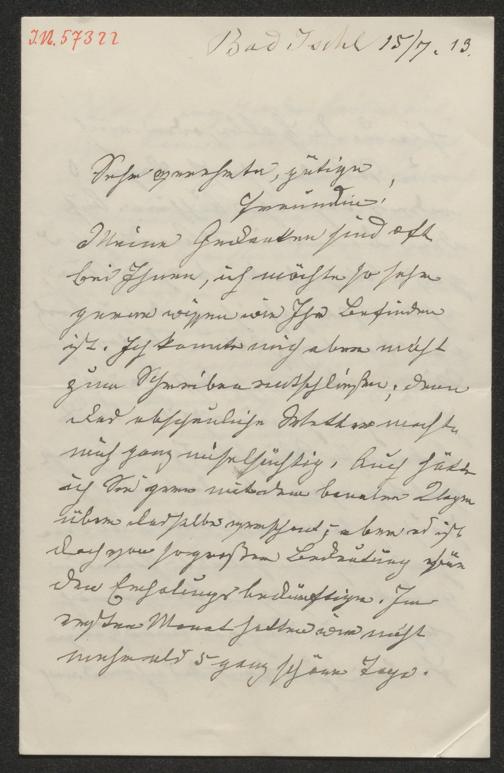 I.N. 57322
Bad Ischl 15/7. 13.
Sehr verehrte, gütige
Freundin!
Meine Gedanken sind oft
bei Ihnen, ich möchte so sehr
gerne wissen wie Ihr Befinden
ist. Ich konnte mich aber nicht
zum Schreiben entschließen, denn
das abscheuliche Wetter machte
mich ganz miselsüchtig. Auch hätte
ich Sie gern mit den Klagen
über dasselbe verschont; aber es ist
doch von so großer Bedeutung für
den Erholungsbedürftigen. Im
ersten Monat hatten wir nicht
mehr als 5 ganz schöne Tage.